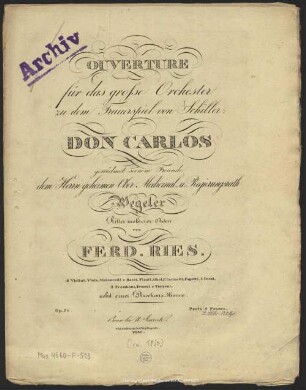 Archiv
OUVERTURE
für das grosse Orchester
zu dem Trauerspiel von Schiller
DON CARLOS
gewidmet seinem Freunde
dem Herrn geheimen Ober Medicinal u. Regierungsrath
Wegeler
Ritter mehrerer Orden
von
FERD. RIES.
nebst einer Directions Stimme
Op. 94.
Bonn bei N. Simrock
(ca. 1820)